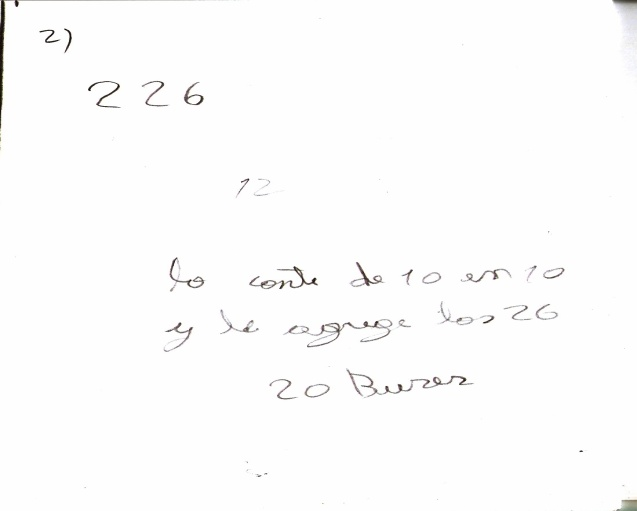 2)
226
12
lo conte de 10 en 10
y le agrege los 26
20 Buzez